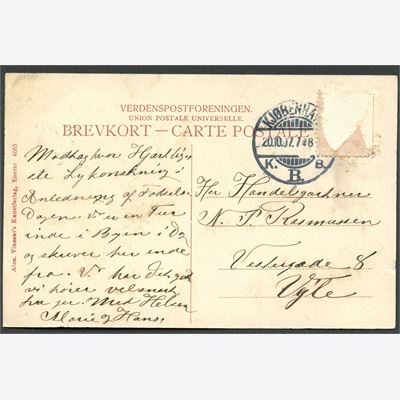 VERDENSPOSTFORENINGEN.
UNION POSTALE UNIVERSELLE.
BREVKORT – CARTE POSTALE
KJØBENHA
20.10.07.7-8
K. B.
B.
Alex. Vincent's Kunstforlag, Eneret 4055
Modtag vor Hjertelig
ste Lykønskning i
Anledning af Fødsels
Dagen. Vi er en Tur
inde i Byen i Dag
og skriver her inde
fra. Vi har det godt
vi hører velsagt
fra jer. Med Hilsen
Marie og Hans.
Her Handelsgartner
N. P. Rasmussen
Vestergade 8
Vejle